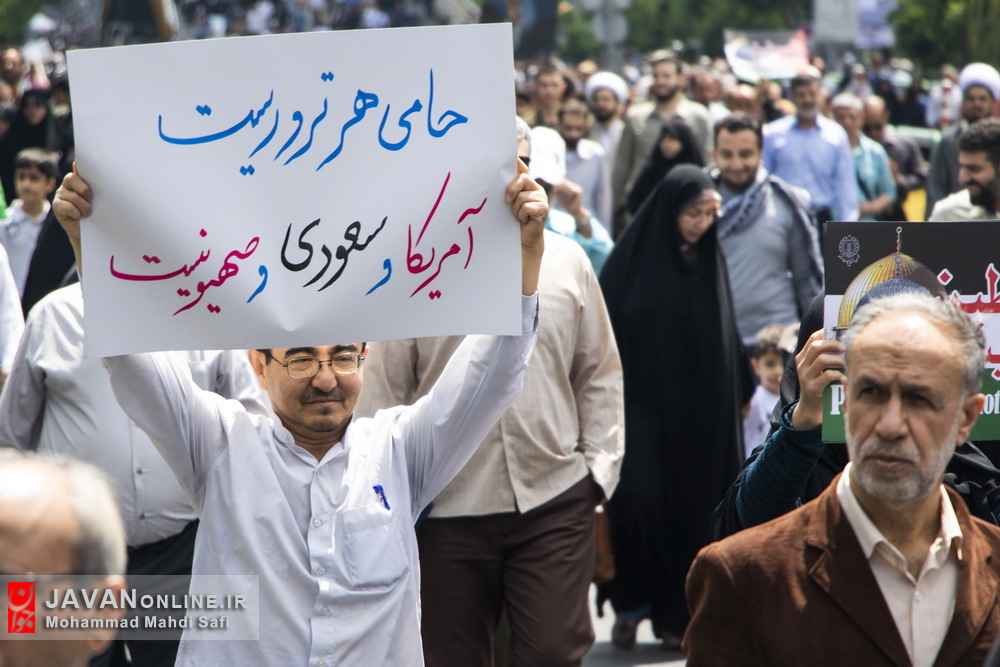 حامی هر تروریست
آمریکا و سعودی و صهیونیست
JAVANONLINE.IR
Mohammad Mahdi Safi